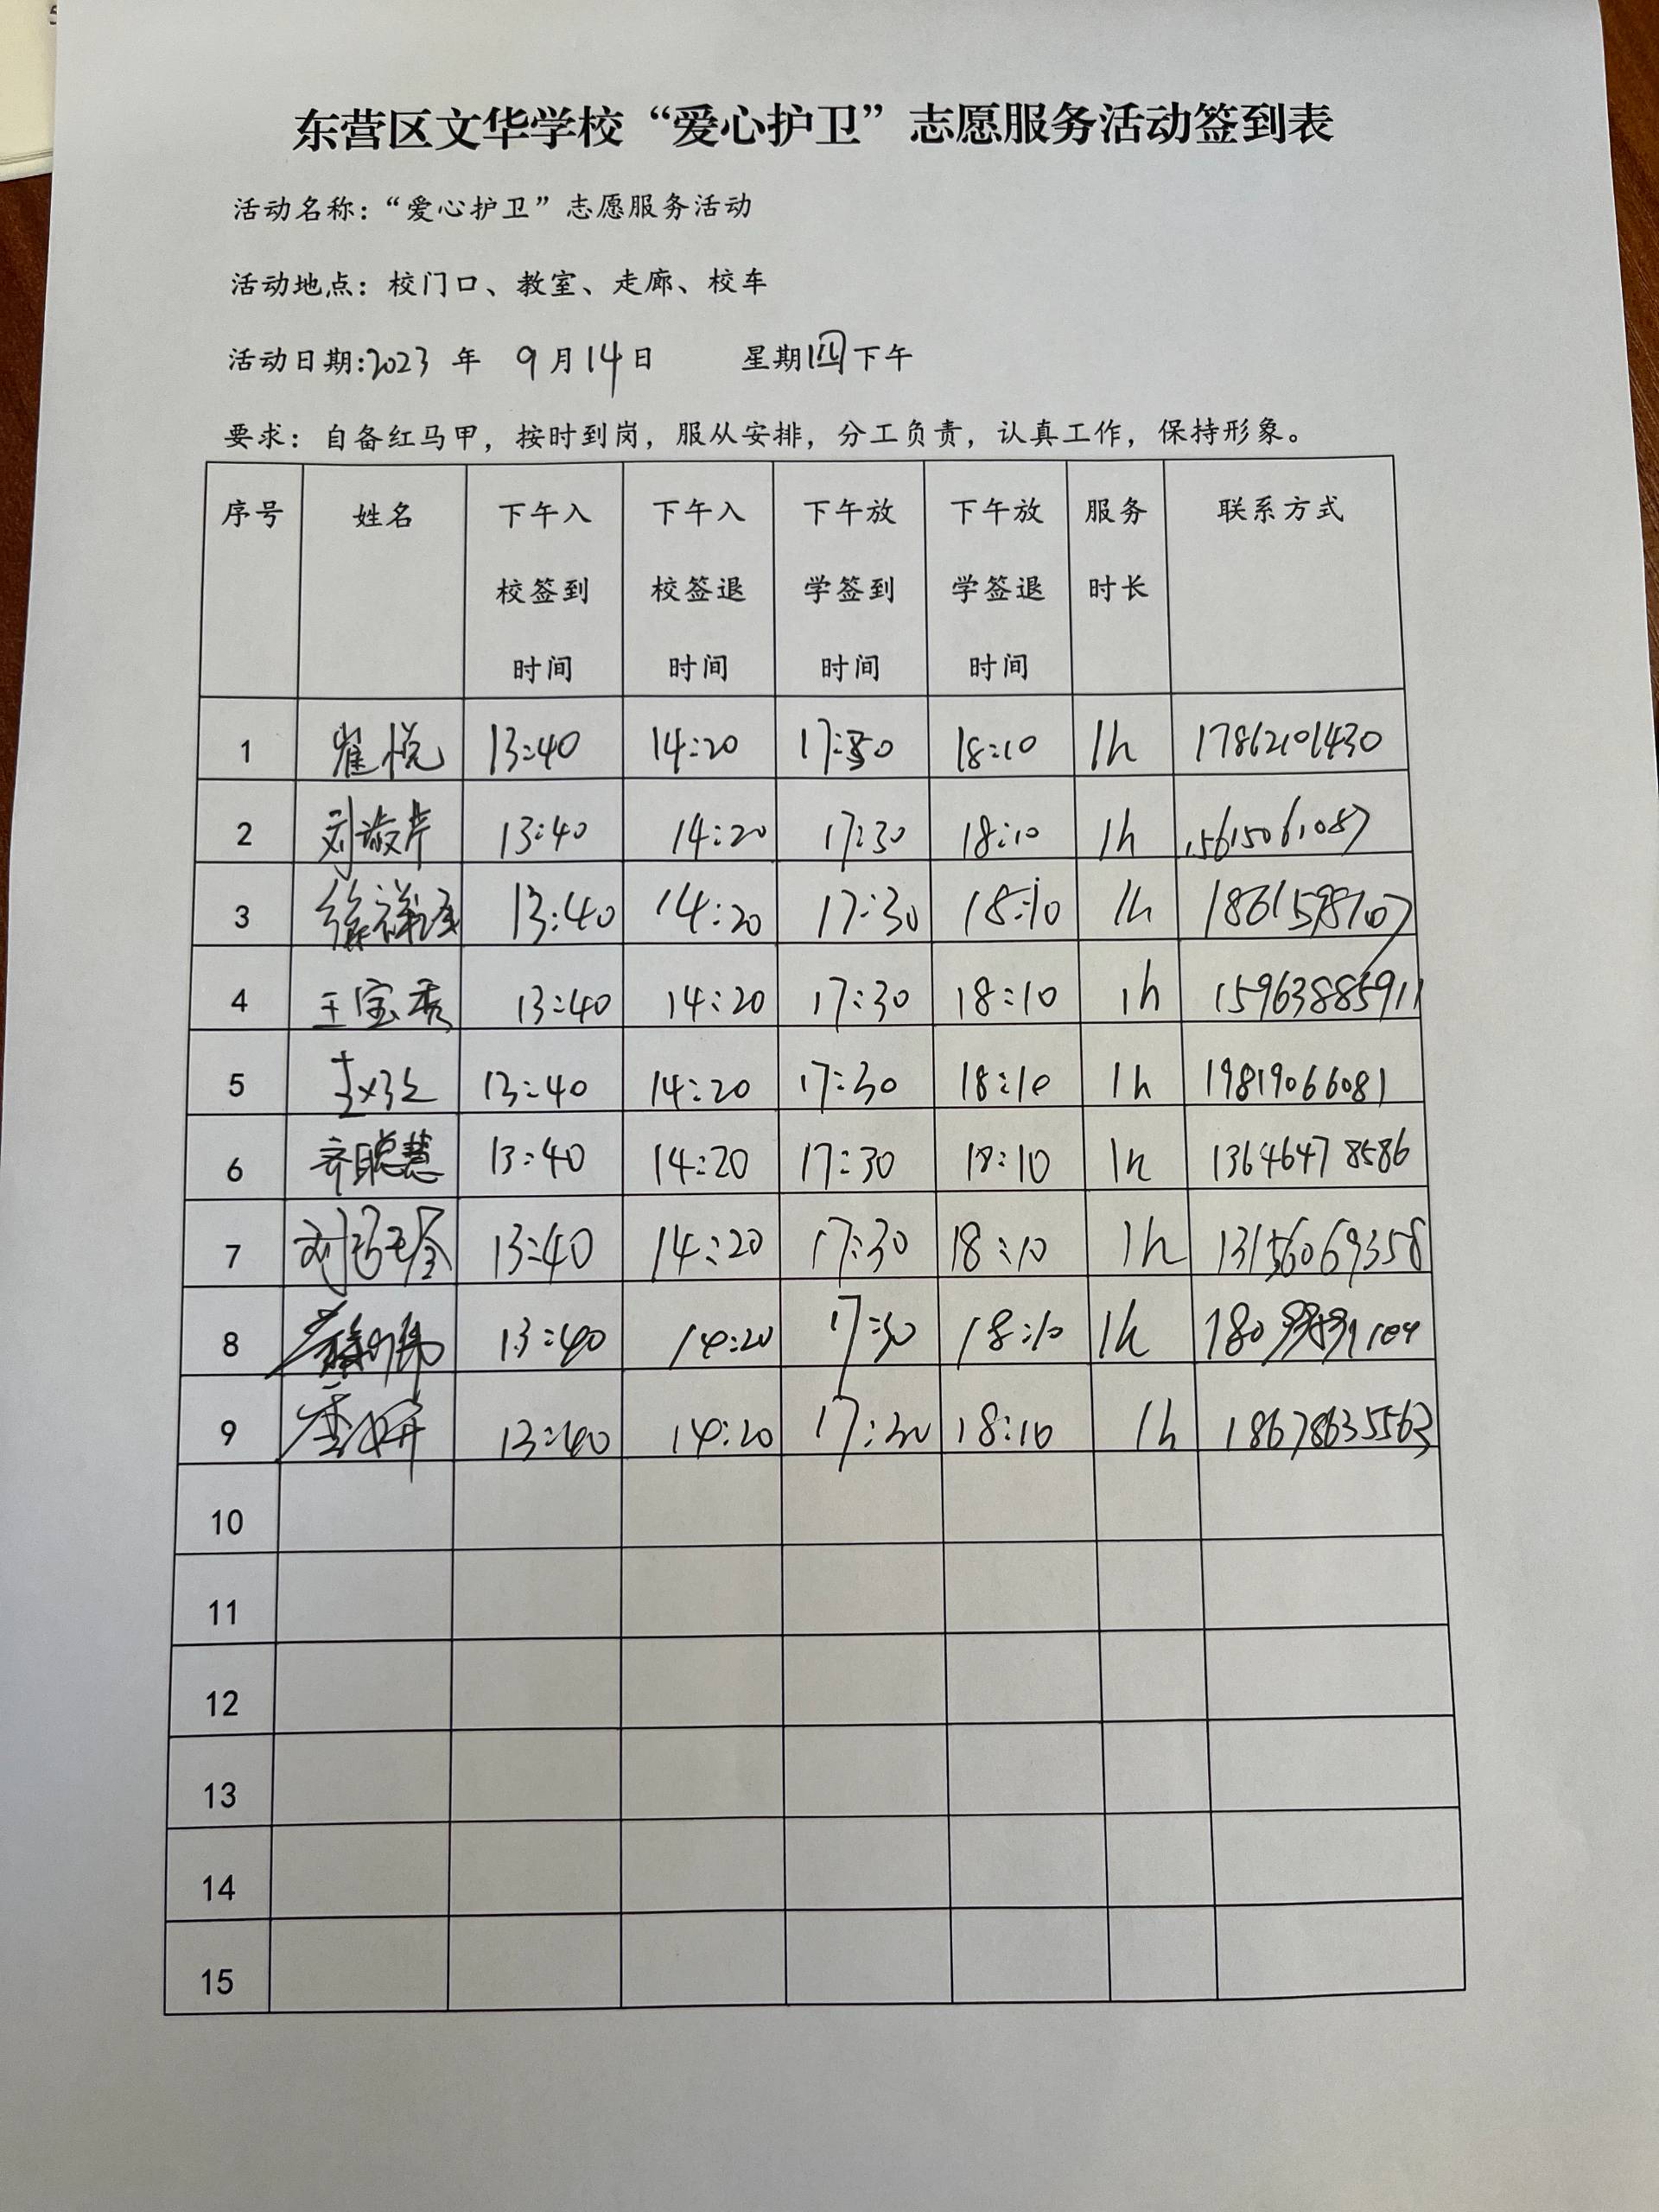 东营区文华学校“爱心护卫”志愿服务活动签到表
活动名称：“爱心护卫”志愿服务活动
活动地点：校门口、教室、走廊、校车
活动日期:2023 年 9月14日 星期四下午
要求：自备红马甲，按时到岗，服从安排，分工负责，认真工作，保持形象。
序号 姓名 下午入校签到时间 下午入校签退时间 下午放学签到时间 下午放学签退时间 服务时长 联系方式
1 崔悦 13:40 14:20 17:30 18:10 1h 17862101430
2 刘淑芹 13:40 14:20 17:30 18:10 1h 15615061087
3 13:40 14:20 17:30 18:10 1h 18615987107
4 王宝秀 13:40 14:20 17:30 18:10 1h 15963885911
5 13:40 14:20 17:30 18:10 1h 19819066081
6 齐聪慧 13:40 14:20 17:30 18:10 1h 13646478586
7 13:40 14:20 17:30 18:10 1h 13156069358
8 13:40 14:20 17:30 18:10 1h
9 13:40 14:20 17:30 18:10 1h 18678635563
10
11
12
13
14
15